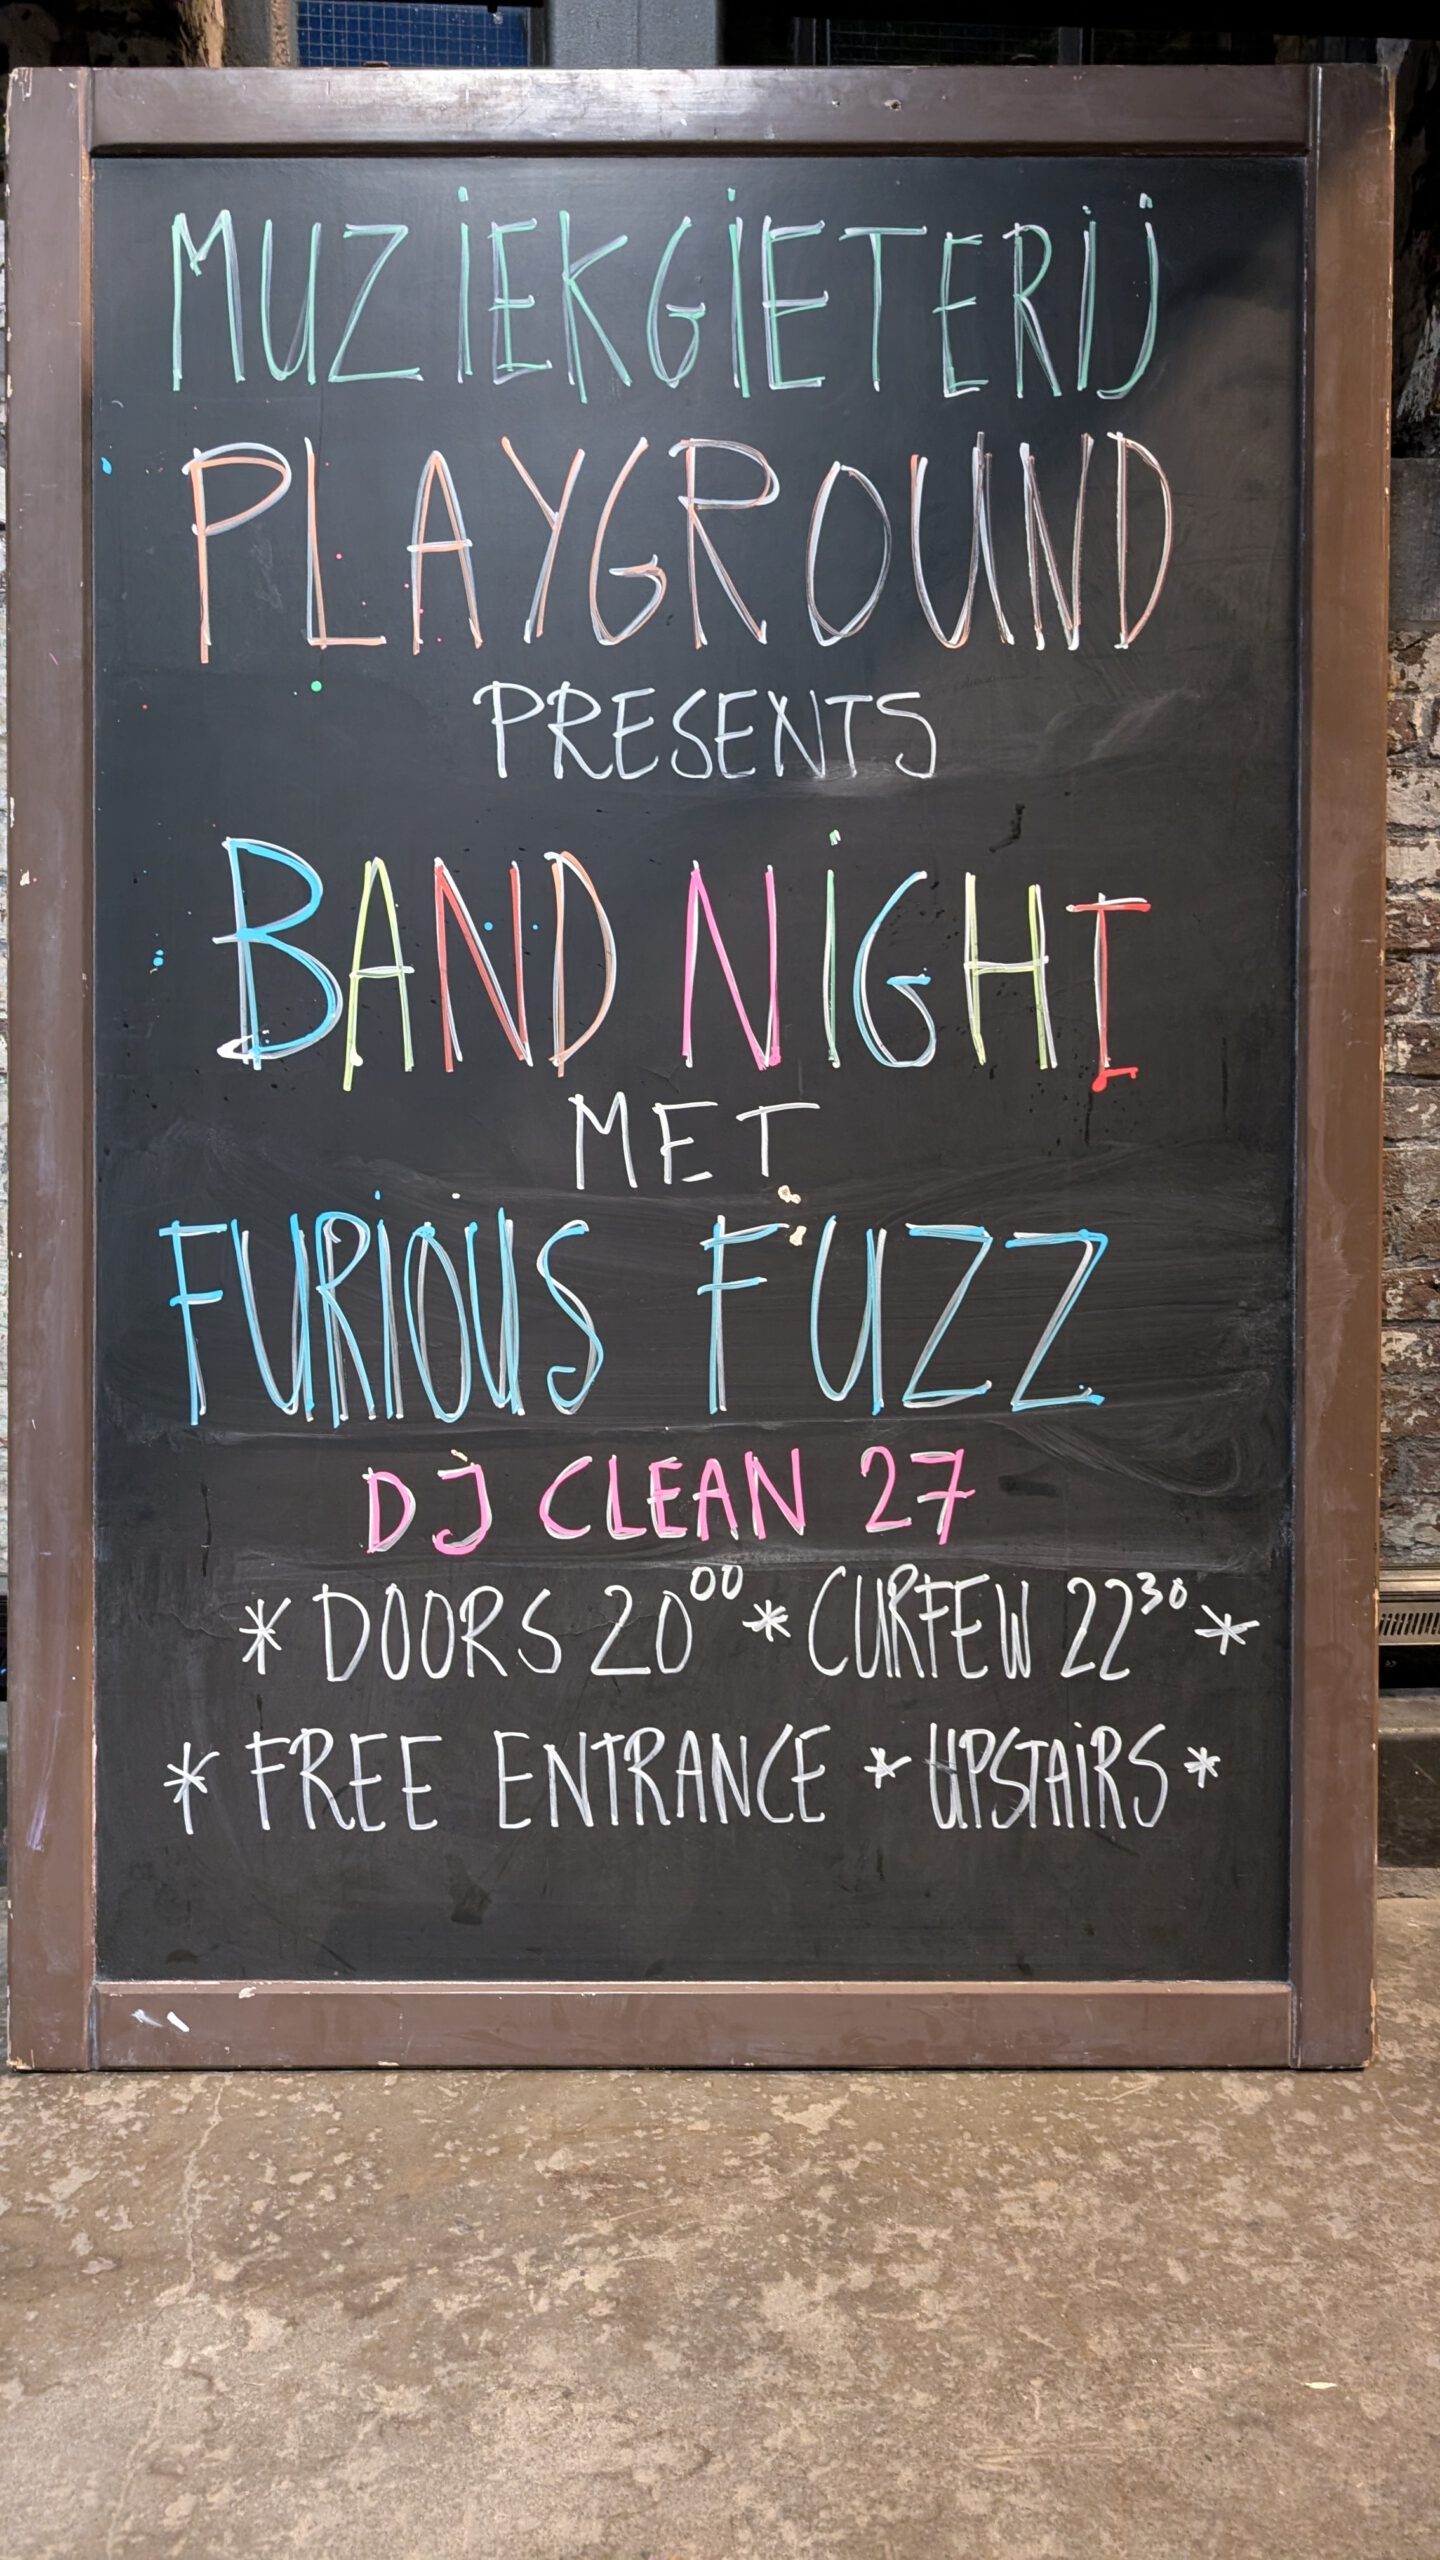 MUZIEKGIETERIJ
PLAYGROUND
PRESENTS
BAND NIGHT
MET
FURIOUS FUZZ
DJ CLEAN 27
* DOORS 20⁰⁰ * CURFEW 22³⁰ *
* FREE ENTRANCE * UPSTAIRS *